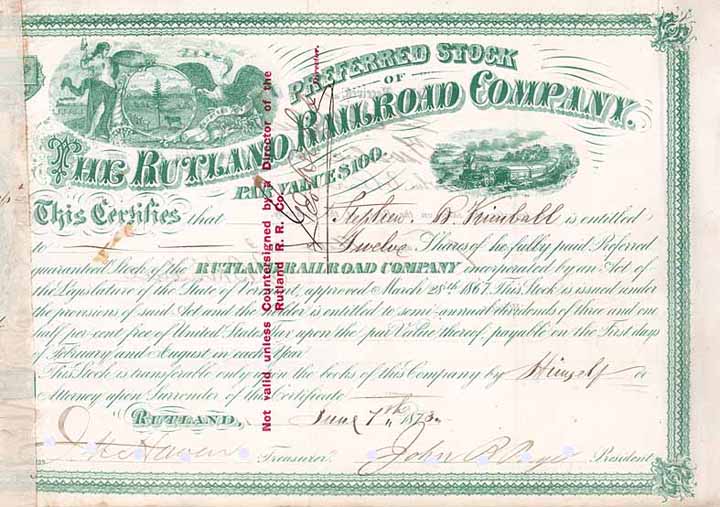 PREFERRED STOCK
OF
THE RUTLAND RAILROAD COMPANY.
PAR VALUE $100.
This Certifies that Stephen B. Kimball is entitled
to Twelve Shares of the fully paid Preferred
guaranteed Stock of the RUTLAND RAILROAD COMPANY incorporated by an Act of
the Legislature of the State of Vermont, approved March 28th 1867. This Stock is issued under
the provisions of said Act and the holder is entitled to semi-annual dividends of three and one
half per cent free of United States Tax upon the par Value thereof, payable on the First days
of February and August in each Year.
This Stock is transferable only upon the books of this Company by Himself or
Attorney upon Surrender of this Certificate
RUTLAND, June 7th 1873.
Treasurer. John B. Page President
Not valid unless Countersigned by a Director of the
Rutland R. R. Co.
Director.